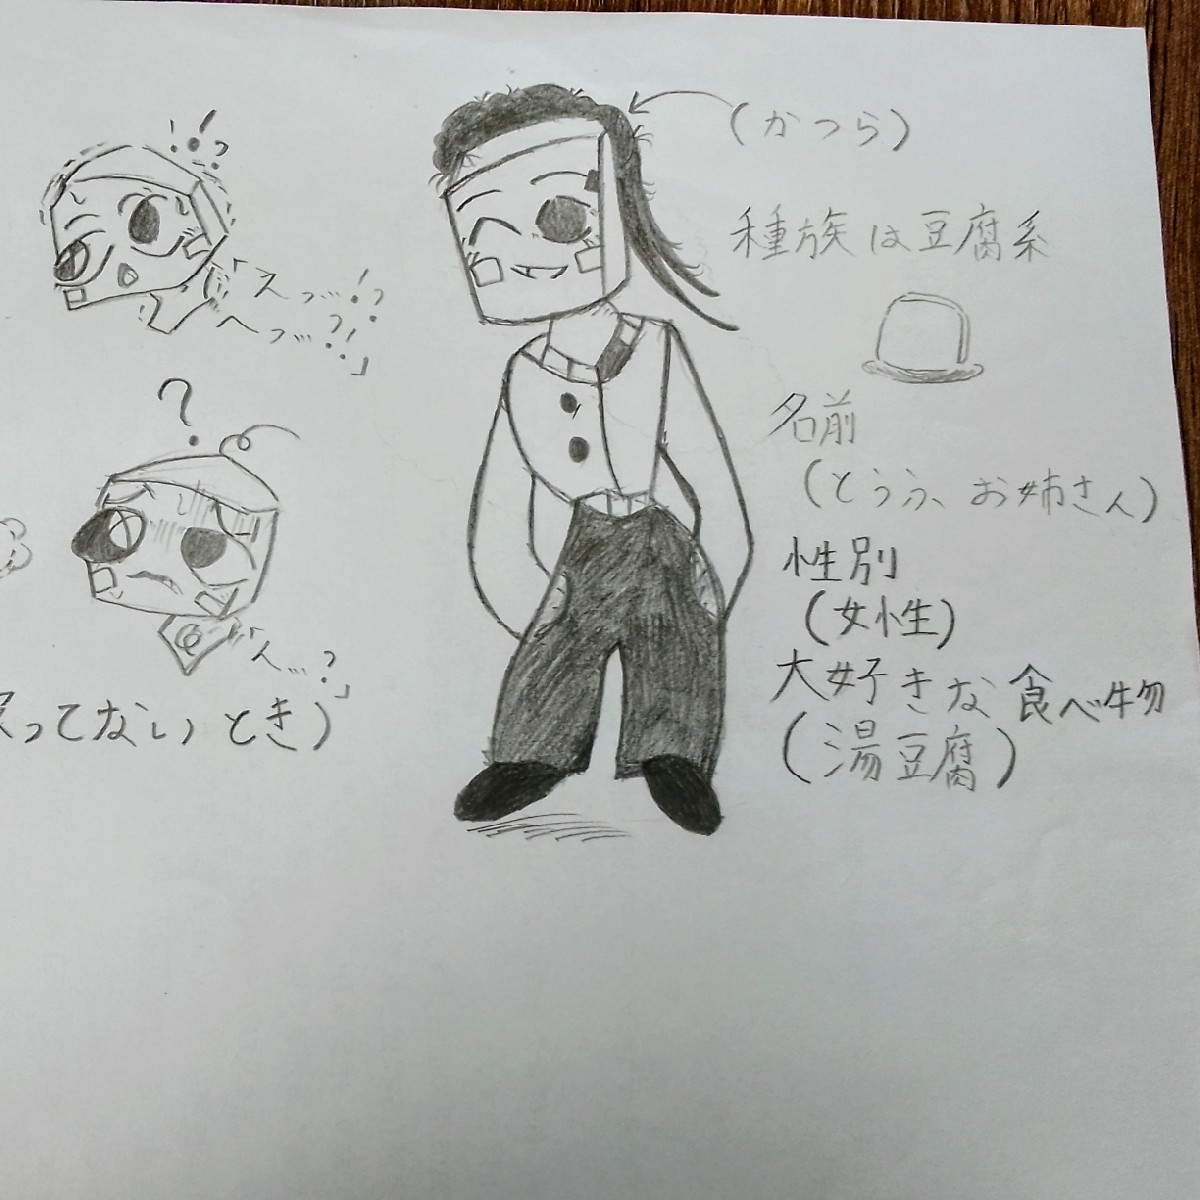 (かつら)
種族は豆腐系
名前
(とうふ、お姉さん)
性別
(女性)
大好きな食べ物
(湯豆腐)
!?
「えっ…!?
へっ…?!」
?
「ん…?」
ってないとき)